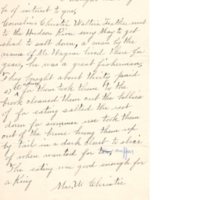 be of interest to you.
Cornelius Christie Walter Feather went
to the Hudson River every May to get
shad to salt down, a man by the
name of Abe Megee took them for
years, he was a great fisherman,
They bought about thirty paid
so for them took them to the
brook cleaned them cut the bellies
off for eating salted the rest
down for summer use took them
out of the brine hung them up
by tail in a dark closet to slice
of when wanted for
The eating was good enough for
a King
Mrs. W Christie